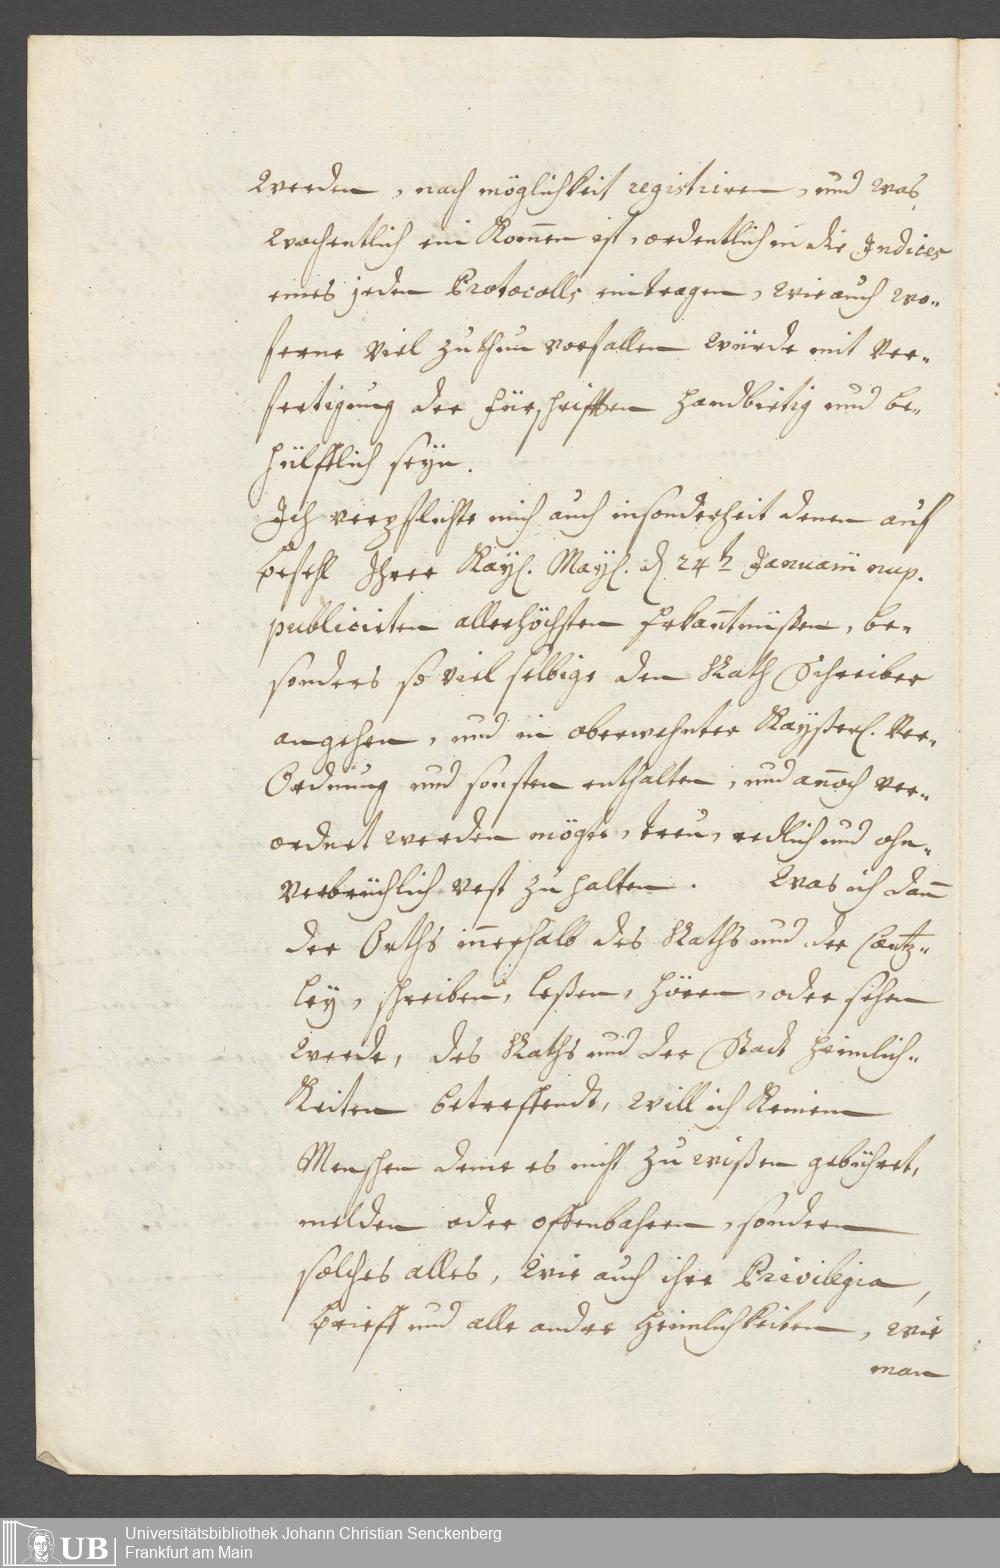 werden, nach möglichkeit registriren, und was
wochentlich ein Kom̄en ist, ordentlich in die Indices
eines jeden Protocolls eintragen, wie auch wo-
ferne viel zu thun vorfallen würde mit Ver-
fertigung der fürschrifften handbietig und be-
hülfflich seÿn.
Ich verpflichte mich auch insonderheit denen auf
befehl Ihrer Kaÿl. Maÿl. d. 24t Januarii nup.
publicirten allerhöchsten Erkan̄tnüßen, be-
sonders so viel selbige den Rath Schreiber
angehen, und in oberwehnter Kaÿßerl. Ver-
Ordnung und sonsten enthalten, und an̄och ver-
ordnet werden möge, treu, redlich und ohn-
verbrüchlich vest zu halten. Was ich dan̄
der Orths in̄erhalb des Raths und der Cantz-
leÿ, schreiben, leßen, hören, oder sehen
werde, des Raths und der Stadt heimlich-
Keiten betreffendt, will ich Keinem
Menschen deme es nicht zu wißen gebühret,
melden oder offenbahren, sondern
solches alles, wie auch ihre Privilegia,
brieff und alle andre Heimlichkeiten, wie
man
UB
Universitätsbibliothek Johann Christian Senckenberg
Frankfurt am Main